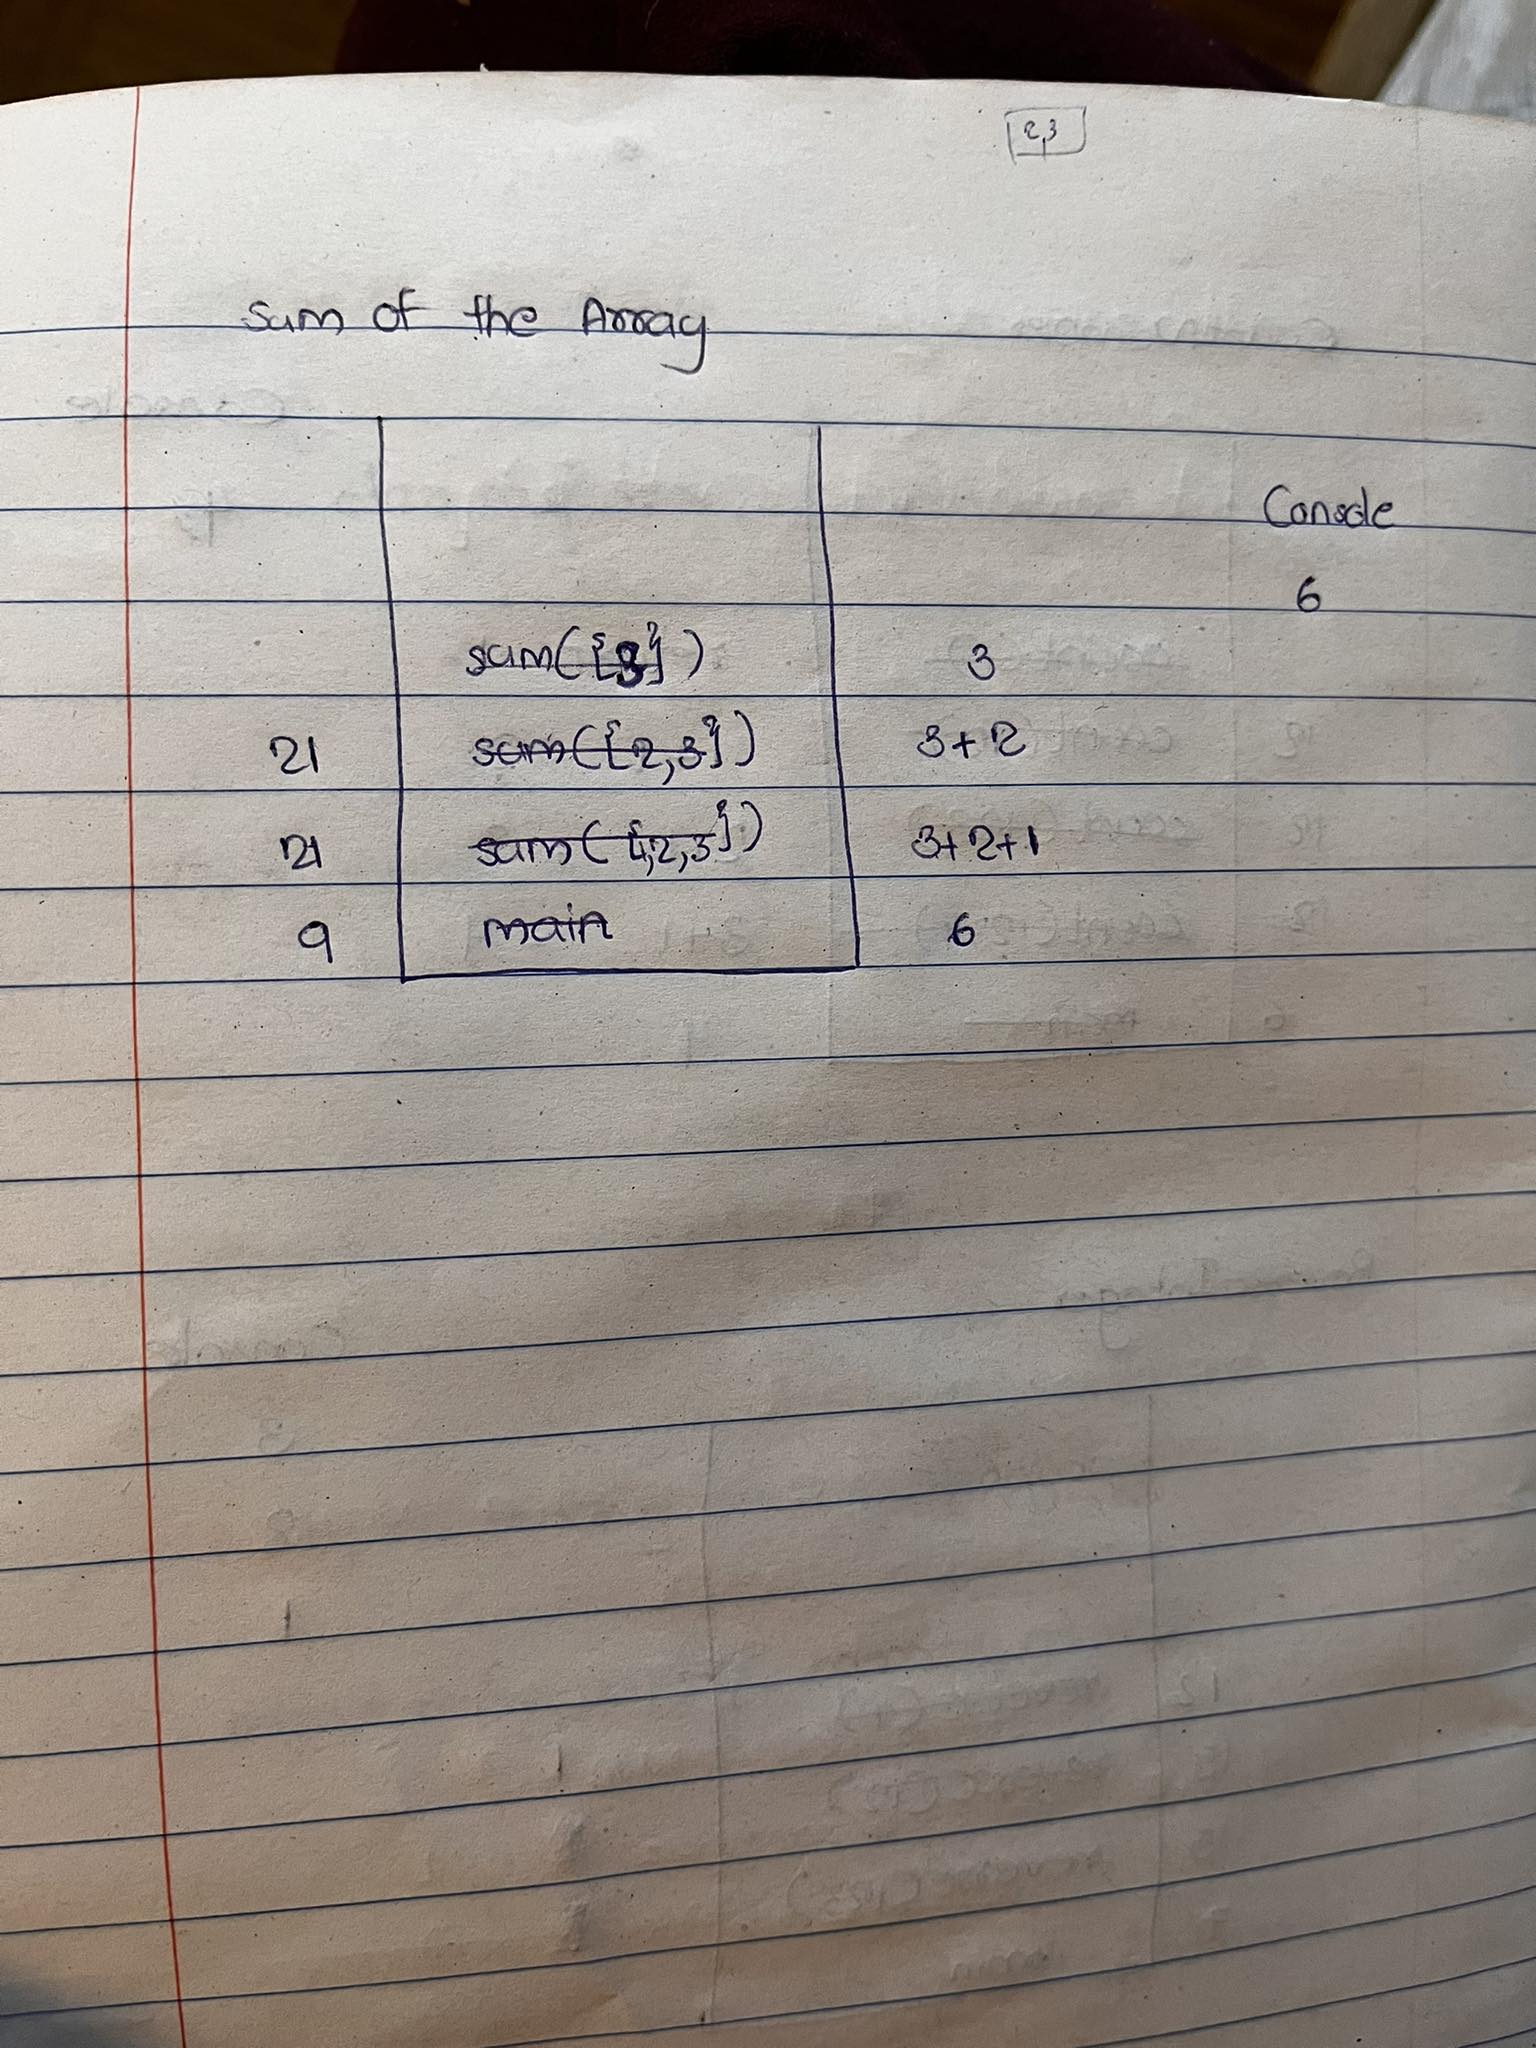 2,3
Sum of the Array
Console
6
sum({3}) 3
21 sum({2,3}) 3+2
21 sum({1,2,3}) 3+2+1
9 main 6